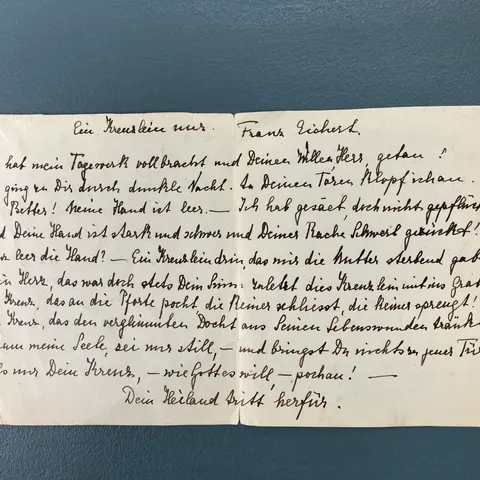 Ein Kreuzlein nur. Franz Eichert.
hat mein Tagewerk vollbracht und Deinen Willen Herr, getan!
ging zu Dir durch dunkle Nacht. An Deinen Toren klopf ich an.
Retter! Meine Hand ist leer. — Ich hab gesäet, doch nicht gepflück
Deine Hand ist stark und schwer und Deiner Rache Schwert gezückt!
leer die Hand? — Ein Kreuzlein drin, das mir die Mutter sterbend gab
Herz, das war doch stets Dein Sinn: zuletzt dies Kreuzlein mit ins Grab
Kreuz, das an die Pforte pocht die Keiner schliesst, die Keiner sprengt!
Kreuz, das den verglimmten Docht aus Seinen Lebenswunden tränk
um meine Seele, sei nur still, — und bringst Du nichts zu jener Tür
nur Dein Kreuz, — wie Gottes will, — pochan! —
Dein Heiland tritt herfür.